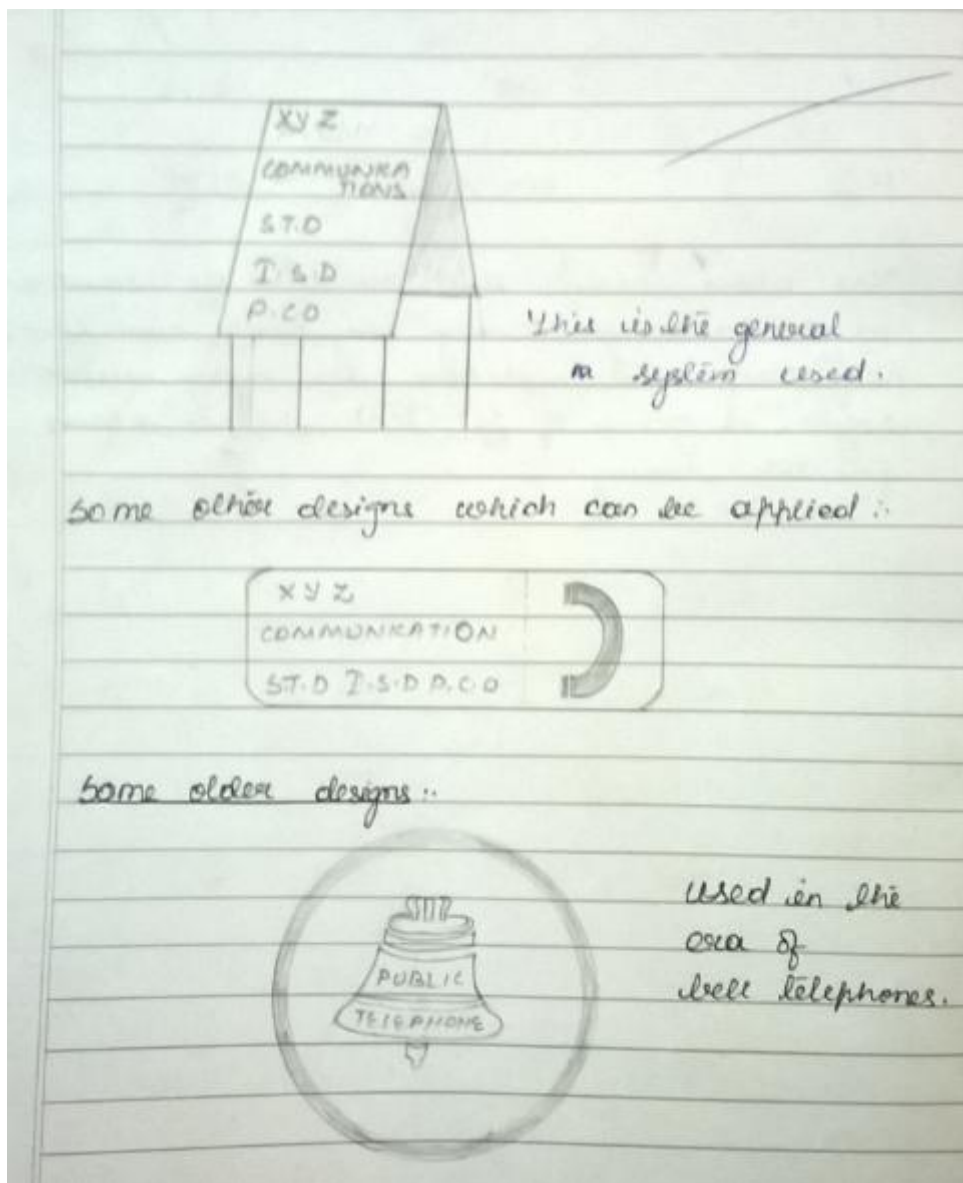 XYZ
COMMUNICA
TIONS
S.T.D
I.S.D
P.CO
This is the general
system used.
some other designs which can be applied :-
XYZ
COMMUNICATION
S.T.D I.S.D P.C.O
some older designs :-
PUBLIC
TELEPHONE
used in the
era of
bell telephones.